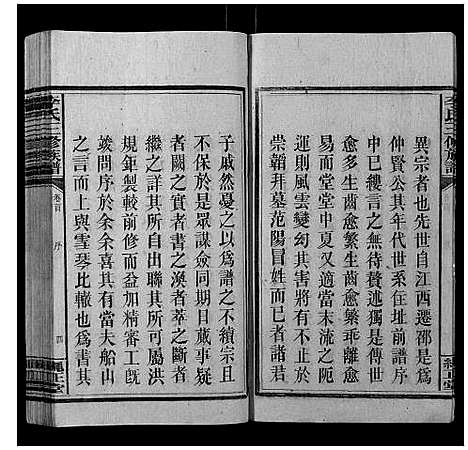 異宗者也先世自江西遷邵是爲
仲賢公其年代世系住址前譜序
中已縷言之無待贅矣獨是傳世
愈多生齒愈繁生齒愈繁乖離愈
易而堂堂中夏又適當末流之阨
風潮雲變幻其害將有不止於
崇韜拜墓范陽冒姓而已者諸君
子戚然憂之以爲譜之不續宗且
不保於是眾謀僉同期日蕆事疑
者汰之實者書之渙者萃之斷者
繼之詳其所自出聯其所可屬洪
規鉅製較前修而益加精審工旣
竣問序於余余喜其有當夫船山
之言而上與雪琴比轍也爲書其
李氏三修族譜
卷首
序
四